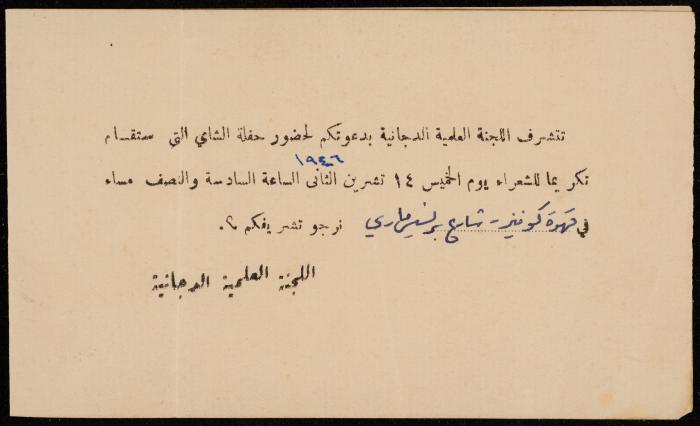 تتشرف اللجنة العلمية الدجانية بدعوتكم لحضور حفلة الشاي التي ستقام
١٩٤٦
تكريما للشعراء يوم الخميس ١٤ تشرين الثاني الساعة السادسة والنصف مساء
في قهوة كونيز - شارع برنسيس ماري نرجو تشريفكم
اللجنة العلمية الدجانية